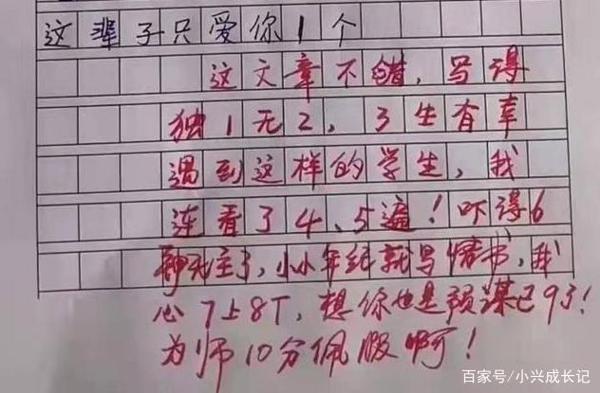 这辈子只爱你1个
这文章不错，写得
独1无2，3生有幸
遇到这样的学生，我
连看了4、5遍！吓得6
神无主了，小小年纪就写情书，我
心7上8下，想你也是预谋已9了！
为师10分佩服啊！
百家号/小兴成长记